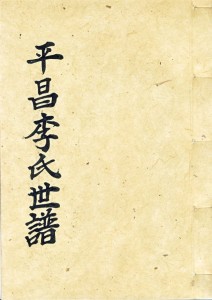 平昌李氏世譜